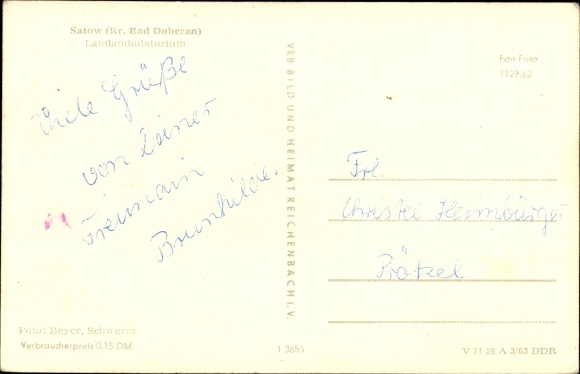 Satow (Kr. Bad Doberan)
Landambulatorium
Viele Grüße
von Deiner
Freundin
Brunhilde.
VEB BILD UND HEIMAT REICHENBACH i. V.
Echt Foto
1127.62
Frl.
Christel Heimbürger
Prötzel
Foto: Beyer, Schwerin
Verbraucherpreis 0,15 DM
1 3655
V 11 28 A 3/63 DDR